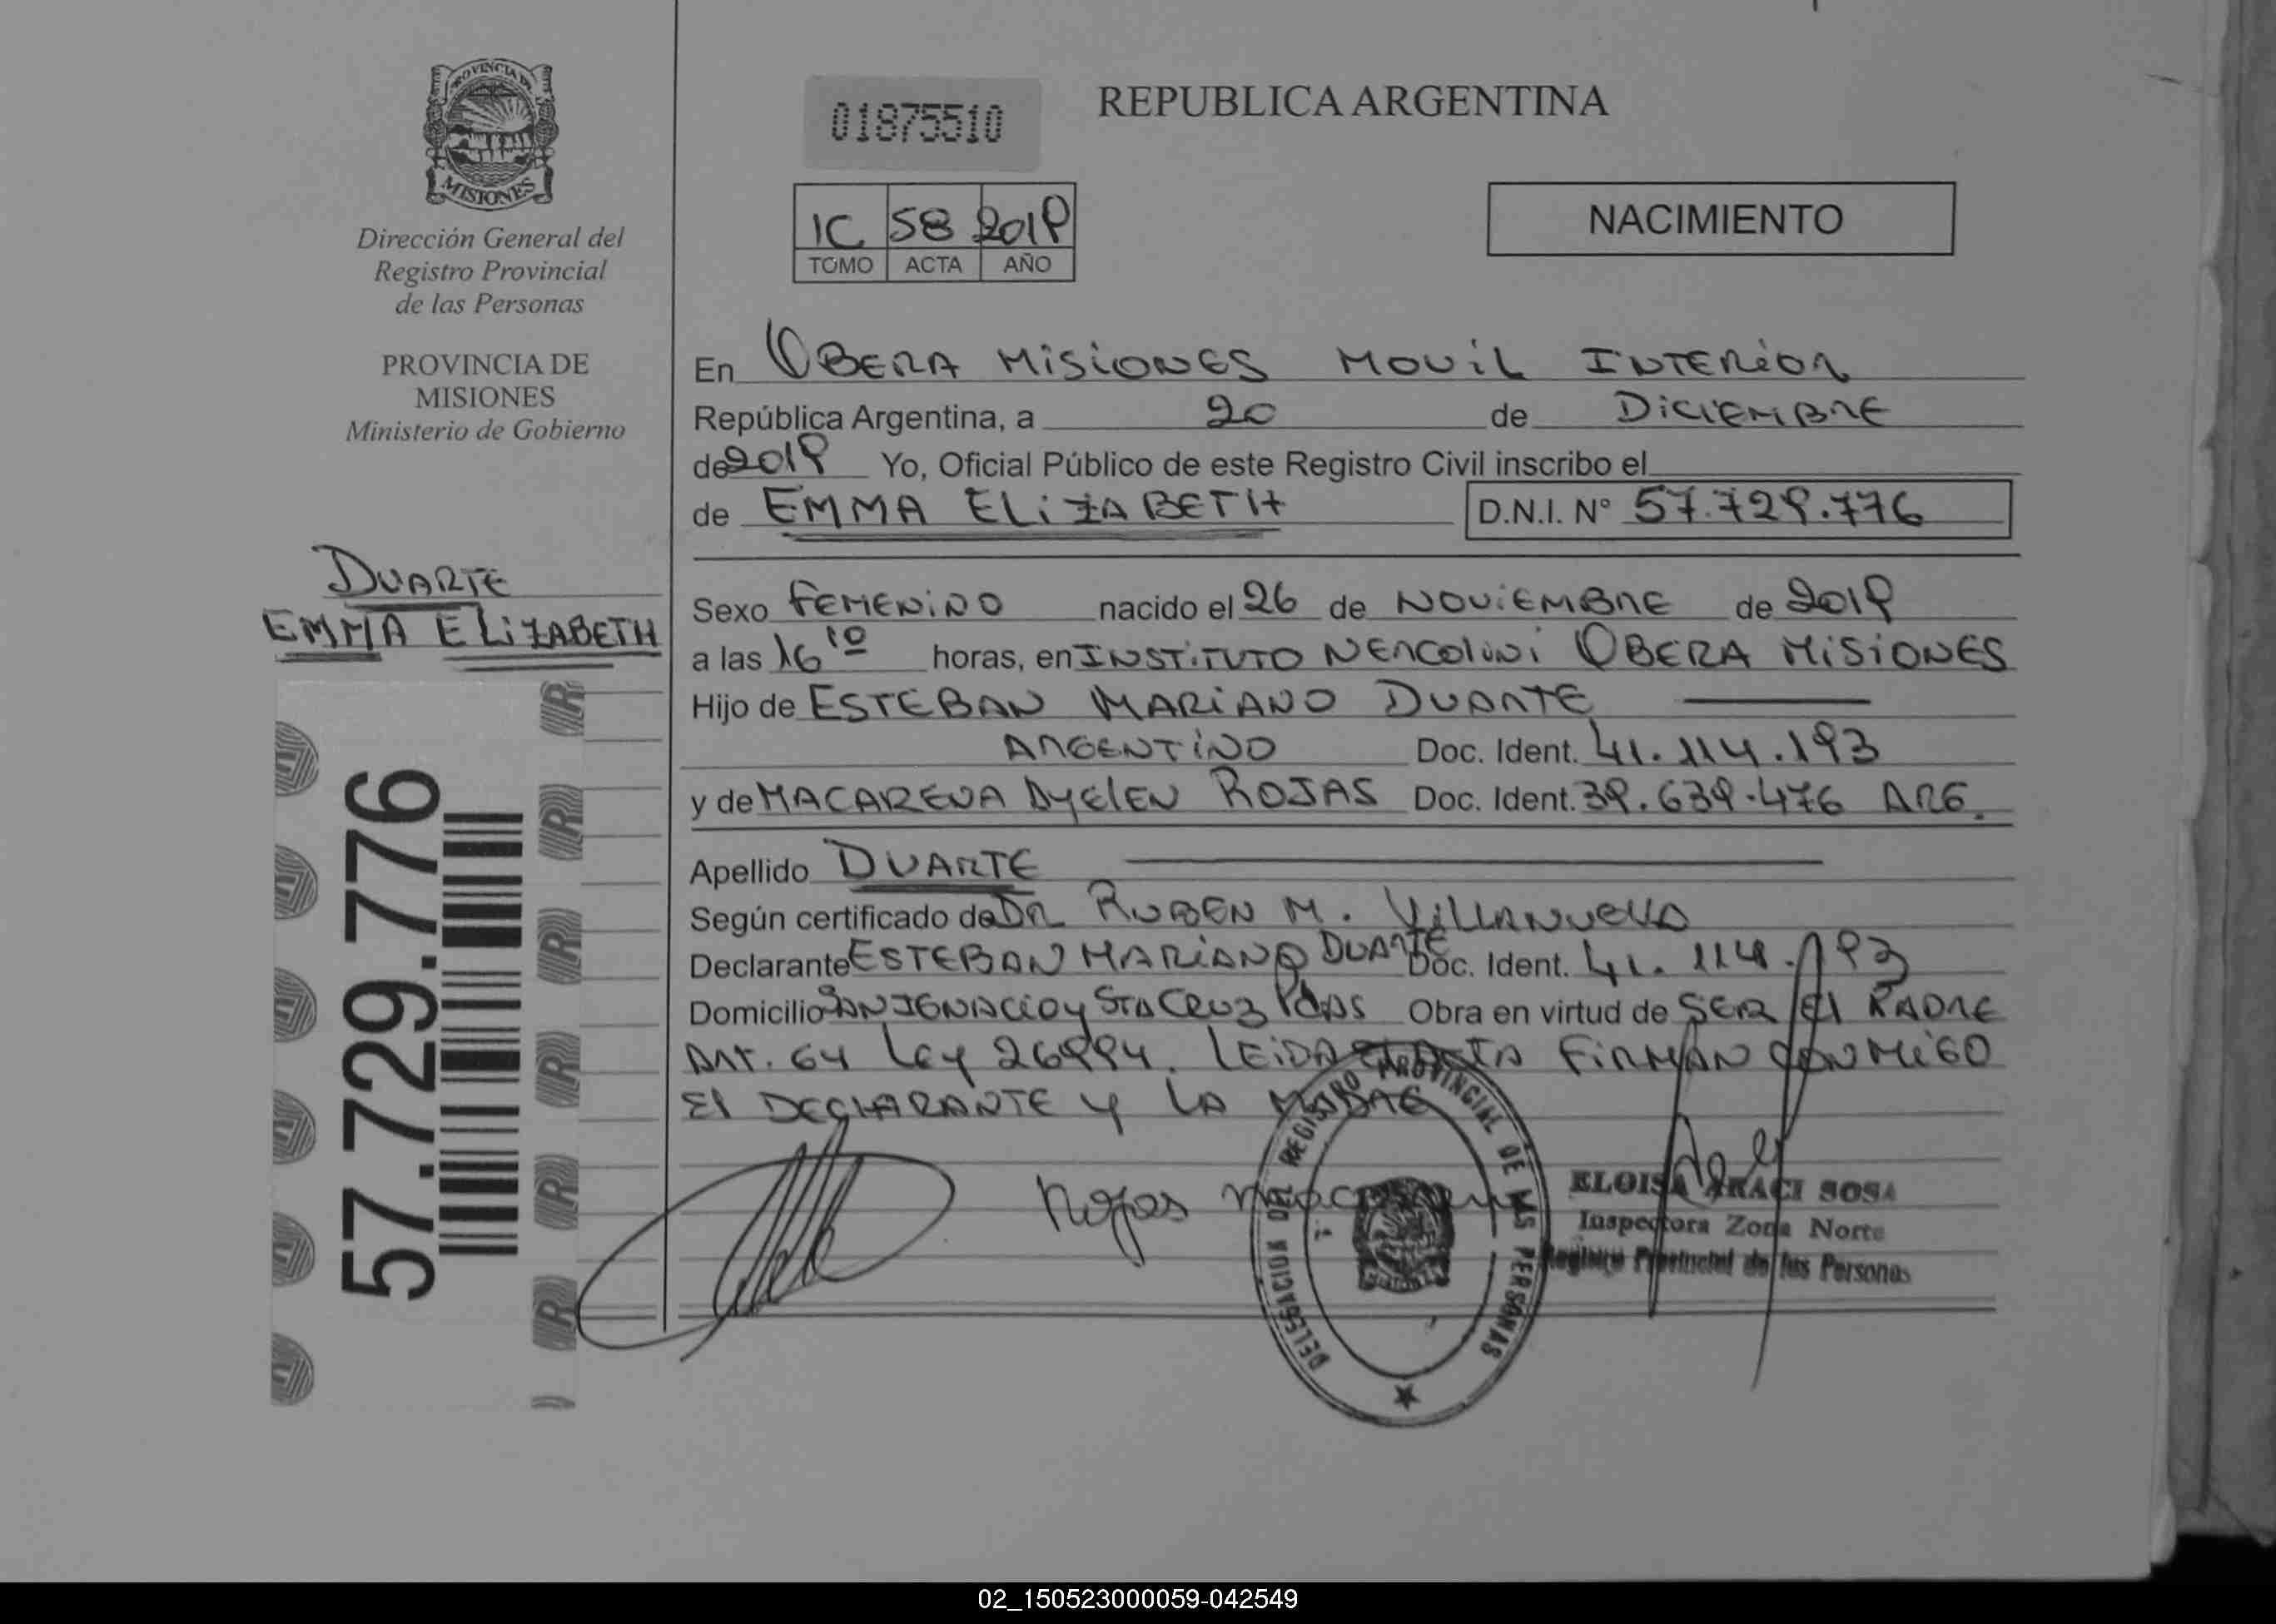 PROVINCIA DE
MISIONES
Dirección General del
Registro Provincial
de las Personas
PROVINCIA DE
MISIONES
Ministerio de Gobierno
DUARTE
EMMA ELIZABETH
57.729.776
01875510
REPUBLICA ARGENTINA
IC 58 2019
TOMO ACTA AÑO
NACIMIENTO
En OBERA MISIONES MOVIL INTERIOR
República Argentina, a 20 de DICIEMBRE
de 2019 Yo, Oficial Público de este Registro Civil inscribo el
de EMMA ELIZABETH D.N.I. N° 57.729.776
Sexo FEMENINO nacido el 26 de NOVIEMBRE de 2019
a las 16 10 horas, en INSTITUTO NERCOLINI OBERA MISIONES
Hijo de ESTEBAN MARIANO DUARTE
ARGENTINO Doc. Ident. 41.114.193
y de MACARENA AYELEN ROJAS Doc. Ident. 39.639.476 ARG.
Apellido DUARTE
Según certificado de DR RUBEN M. VILLANUEVA
Declarante ESTEBAN MARIANO DUARTE Doc. Ident. 41.114.193
Domicilio SAN IGNACIO y STA CRUZ PDAS Obra en virtud de SER El PADRE
ART. 64 Ley 26994. LEIDA EL ACTA FIRMAN CONMIGO
El DECLARANTE y LA MADRE
Rojas Macarena
DELEGACION DEL REGISTRO PROVINCIAL DE LAS PERSONAS
ELOISA ARACI SOSA
Inspectora Zona Norte
Registro Provincial de las Personas
02_150523000059-042549